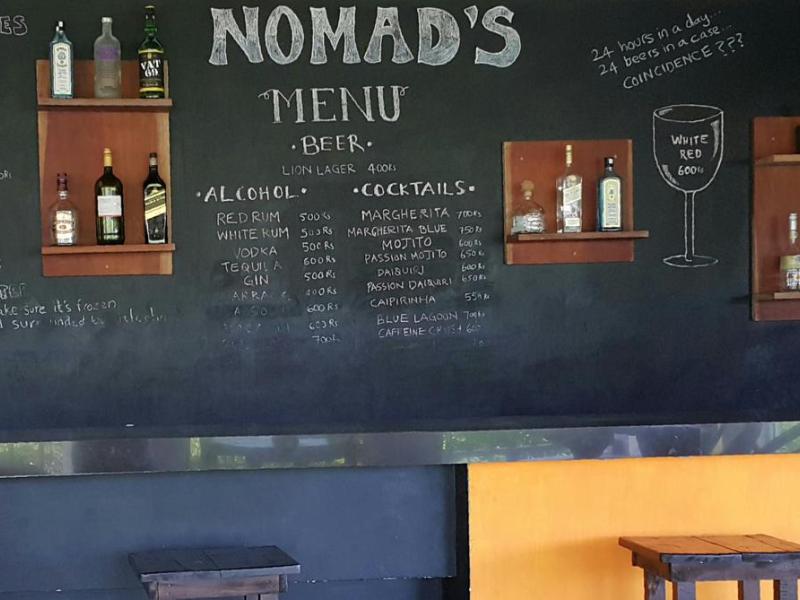 NOMAD'S
MENU
• BEER •
LION LAGER 400Rs
• ALCOHOL •
RED RUM 500Rs
WHITE RUM 500Rs
VODKA 500Rs
TEQUILA 600Rs
GIN 500Rs
400Rs
600Rs
600Rs
700Rs
• COCKTAILS •
MARGHERITA 700Rs
MARGHERITA BLUE 750Rs
MOJITO 600Rs
PASSION MOJITO 650Rs
DAIQUIRI 600Rs
PASSION DAIQUIRI 650Rs
CAIPIRINHA 550Rs
BLUE LAGOON 700Rs
CAFFEINE CRUSH 600
24 hours in a day...
24 beers in a case...
COINCIDENCE ???
WHITE
RED
600Rs
ES
ake sure it's frozen
VAT
69